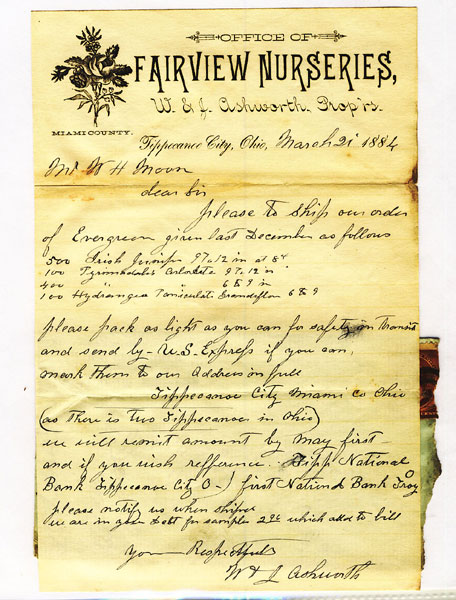 OFFICE OF
FAIRVIEW NURSERIES,
W. & J. Ashworth, Prop'rs.
MIAMI COUNTY.
Tippecanoe City, Ohio, March 21 1884
Mr W H Moon
dear Sir
please to ship our order
of Evergreen given last December as follows
500 Irish Junip 9 to 12 in at 8¢
100 9 to 12 in
400 " 6 & 9 in
100 Hydrangea Paniculati Grandiflora 6 & 9
please pack as light as you can for safety in Transit
and send by - U.S. Express if you can,
mark them to our Address in full
Tippecanoe City Miami co Ohio
(as there is two Tippecanoes in Ohio)
we will remit amount by May first
and if you wish refference. Tipp National
Bank Tippecanoe City O-) first National Bank Troy O
please notify us when shiped
we are in your Debt for samples 29¢ which add to bill
your Respectfuls
W & J Ashworth